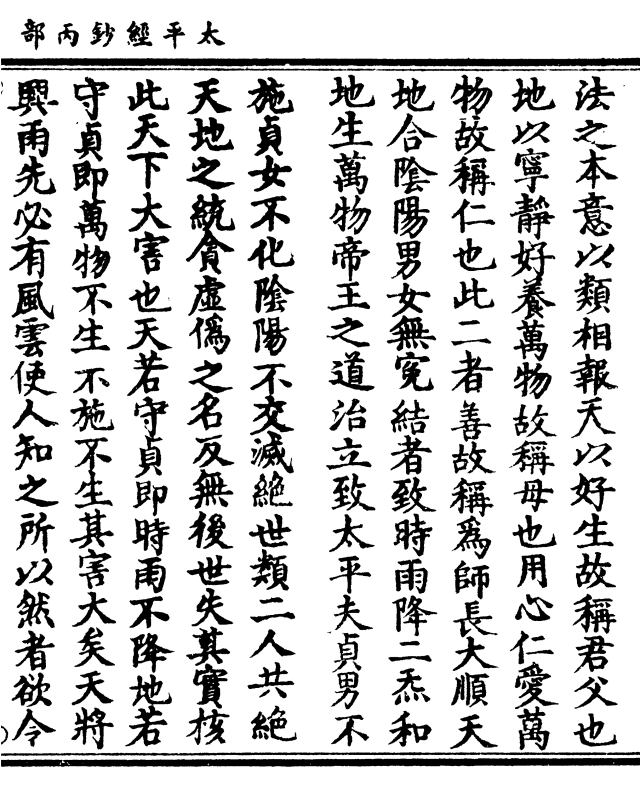 太平經鈔丙部
法之本意以類相報天以好生故稱君父也
地以寧靜好養萬物故稱母也用心仁愛萬
物故稱仁也此二者善故稱爲師長大順天
地合陰陽男女無寃結者致時雨降二炁和
地生萬物帝王之道治立致太平夫貞男不
施貞女不化陰陽不交滅絕世類二人共絕
天地之統貪虛僞之名反無後世失其實核
此天下大害也天若守貞即時雨不降地若
守貞即萬物不生不施不生其害大矣天將
興雨先必有風雲使人知之所以然者欲令